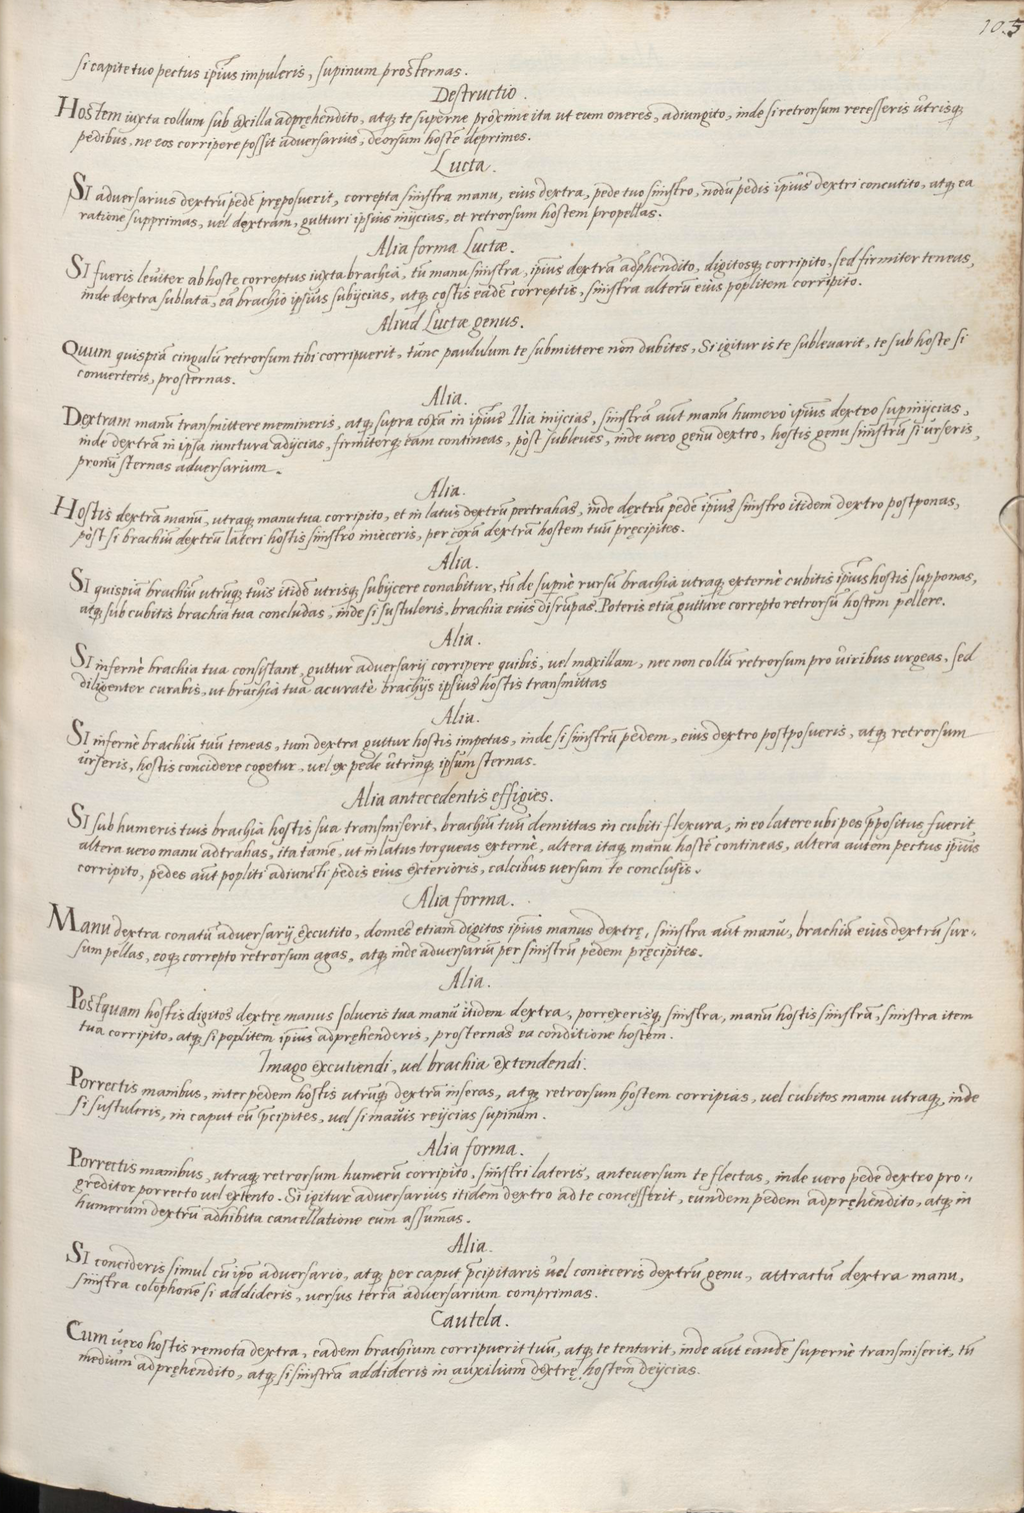 105
si capite tuo pectus ipsius impuleris, supinum prosternas.
Destructio.
Hostem iuxta collum sub axilla adpręhendito, atq; te superne proxime ita ut eum oneres, adiungito, inde si retrorsum recesseris utrisq;
pedibus, ne eos corripere possit adversarius, deorsum hostẽ deprimes.
Lucta.
SI adversarius dextrũ pedẽ pręposuerit, correpta sinistra manu, eius dextra, pede tuo sinistro, nodũ pedis ipsius dextri concutito, atq; ea
ratione supprimas, vel dextram, gutturi ipsius inijcias, et retrorsum hostem propellas.
Alia forma Luctæ.
SI fueris leviter ab hoste correptus iuxta brachia, tũ manu sinistra, ipsius dextrã adp̃hendito, digitosq; corripito, sed firmiter teneas,
inde dextra sublata, eã brachio ipsius subijcias, atq; costis eãdẽ correptis, sinistra alterũ eius poplitem corripito.
Aliud Luctæ genus.
Quum quispiã cingulũ retrorsum tibi corripuerit, tunc paululum te submittere non dubites, Si igitur is te sublevarit, te sub hoste si
converteris, prosternas.
Alia.
Dextram manũ transmittere memineris, atq; supra coxã in ipsius Ilia inijcias, sinistrã aũt manũ humero ipsius dextro superinijcias,
inde dextrã in ipsa iunctura adijcias, firmiterq; eam contineas, põst subleves, inde vero genu dextro, hostis genu sinistrũ si urseris,
pronũ sternas adversarium.
Alia.
Hostis dextrã manũ, utraq; manu tua corripito, et in latus dextrũ pertrahas, inde dextrũ pedẽ ipsius sinistro itidem dextro postponas,
põst si brachiũ dextrũ lateri hostis sinistro inieceris, per coxã dextrã hostem tuũ pręcipites.
Alia.
SI quispiã brachiũ utrũq; tuis itidẽ utrisq; subijcere conabitur, tũ de supernè rursũ brachia utraq; externè cubitis ipsius hostis supponas,
atq; sub cubitis brachia tua concludas, inde si sustuleris, brachia eius disrũpas. Poteris etiã gutture correpto retrorsũ hostem pellere.
Alia.
SI infernè brachia tua consistant, guttur adversarij corripere quibis, vel maxillam, nec non collũ retrorsum pro viribus urgeas, sed
diligenter curabis, ut brachia tua acuratè brachijs ipsius hostis transmittas
Alia.
SI infernè brachiũ tuũ teneas, tum dextra guttur hostis impetas, inde si sinistrũ pedem, eius dextro postposueris, atq; retrorsum
urseris, hostis concidere cogetur, vel ex pede utrinq; ipsum sternas.
Alia antecedentis effigies.
SI sub humeris tuis brachia hostis sua transmiserit, brachiũ tuũ demittas in cubiti flexura, in eo latere ubi pes p̃positus fuerit,
altera vero manu adtrahas, ita tamẽ, ut in latus torqueas externè, altera itaq; manu hostẽ contineas, altera autem pectus ipsius
corripito, pedes aũt popliti adiuncti pedis eius exterioris, calcibus versum te conclusis.
Alia forma.
Manu dextra conatũ adversarij excutito, domes etiam digitos ipsius manus dextrę, sinistra aũt manu, brachiũ eius dextrũ sur=
sum pellas, eoq; correpto retrorsum agas, atq; inde adversariũ per sinistrũ pedem pręcipites.
Alia.
Postquam hostis digitos dextrę manus solveris tua manũ itidem dextra, porrexerisq; sinistra, manũ hostis sinistrã, sinistra item
tua corripito, atq; si poplitem ipsius adpręhenderis, prosternas ea conditione hostem.
Imago excutiendi, vel brachia extendendi.
Porrectis manibus, inter pedem hostis utrũq; dextrã inseras, atq; retrorsum hostem corripias, vel cubitos manu utraq;, inde
si sustuleris, in caput eũ p̃cipites, vel si mauis reijcias supinum.
Alia forma.
Porrectis manibus, utraq; retrorsum humerũ corripito, sinistri lateris, anteversum te flectas, inde vero pede dextro pro=
greditor porrecto vel extento. Si igitur adversarius itidem dextro ad te concesserit, eundem pedem adpręhendito, atq; in
humerum dextrũ adhibita cancellatione eum assumas.
Alia.
SI concideris simul cũ ipso adversario, atq; per caput p̃cipitaris vel conieceris dextrũ genu, attractũ dextra manu,
sinistra colophonẽ si addideris, versus terrã adversarium comprimas.
Cautela.
Cum vero hostis remota dextra, eadem brachium corripuerit tuũ, atq; te tentarit, inde aũt eandẽ supernè transmiserit, tũ
medium adpręhendito, atq; si sinistrã addideris in auxilium dextrę, hostem deijcias.